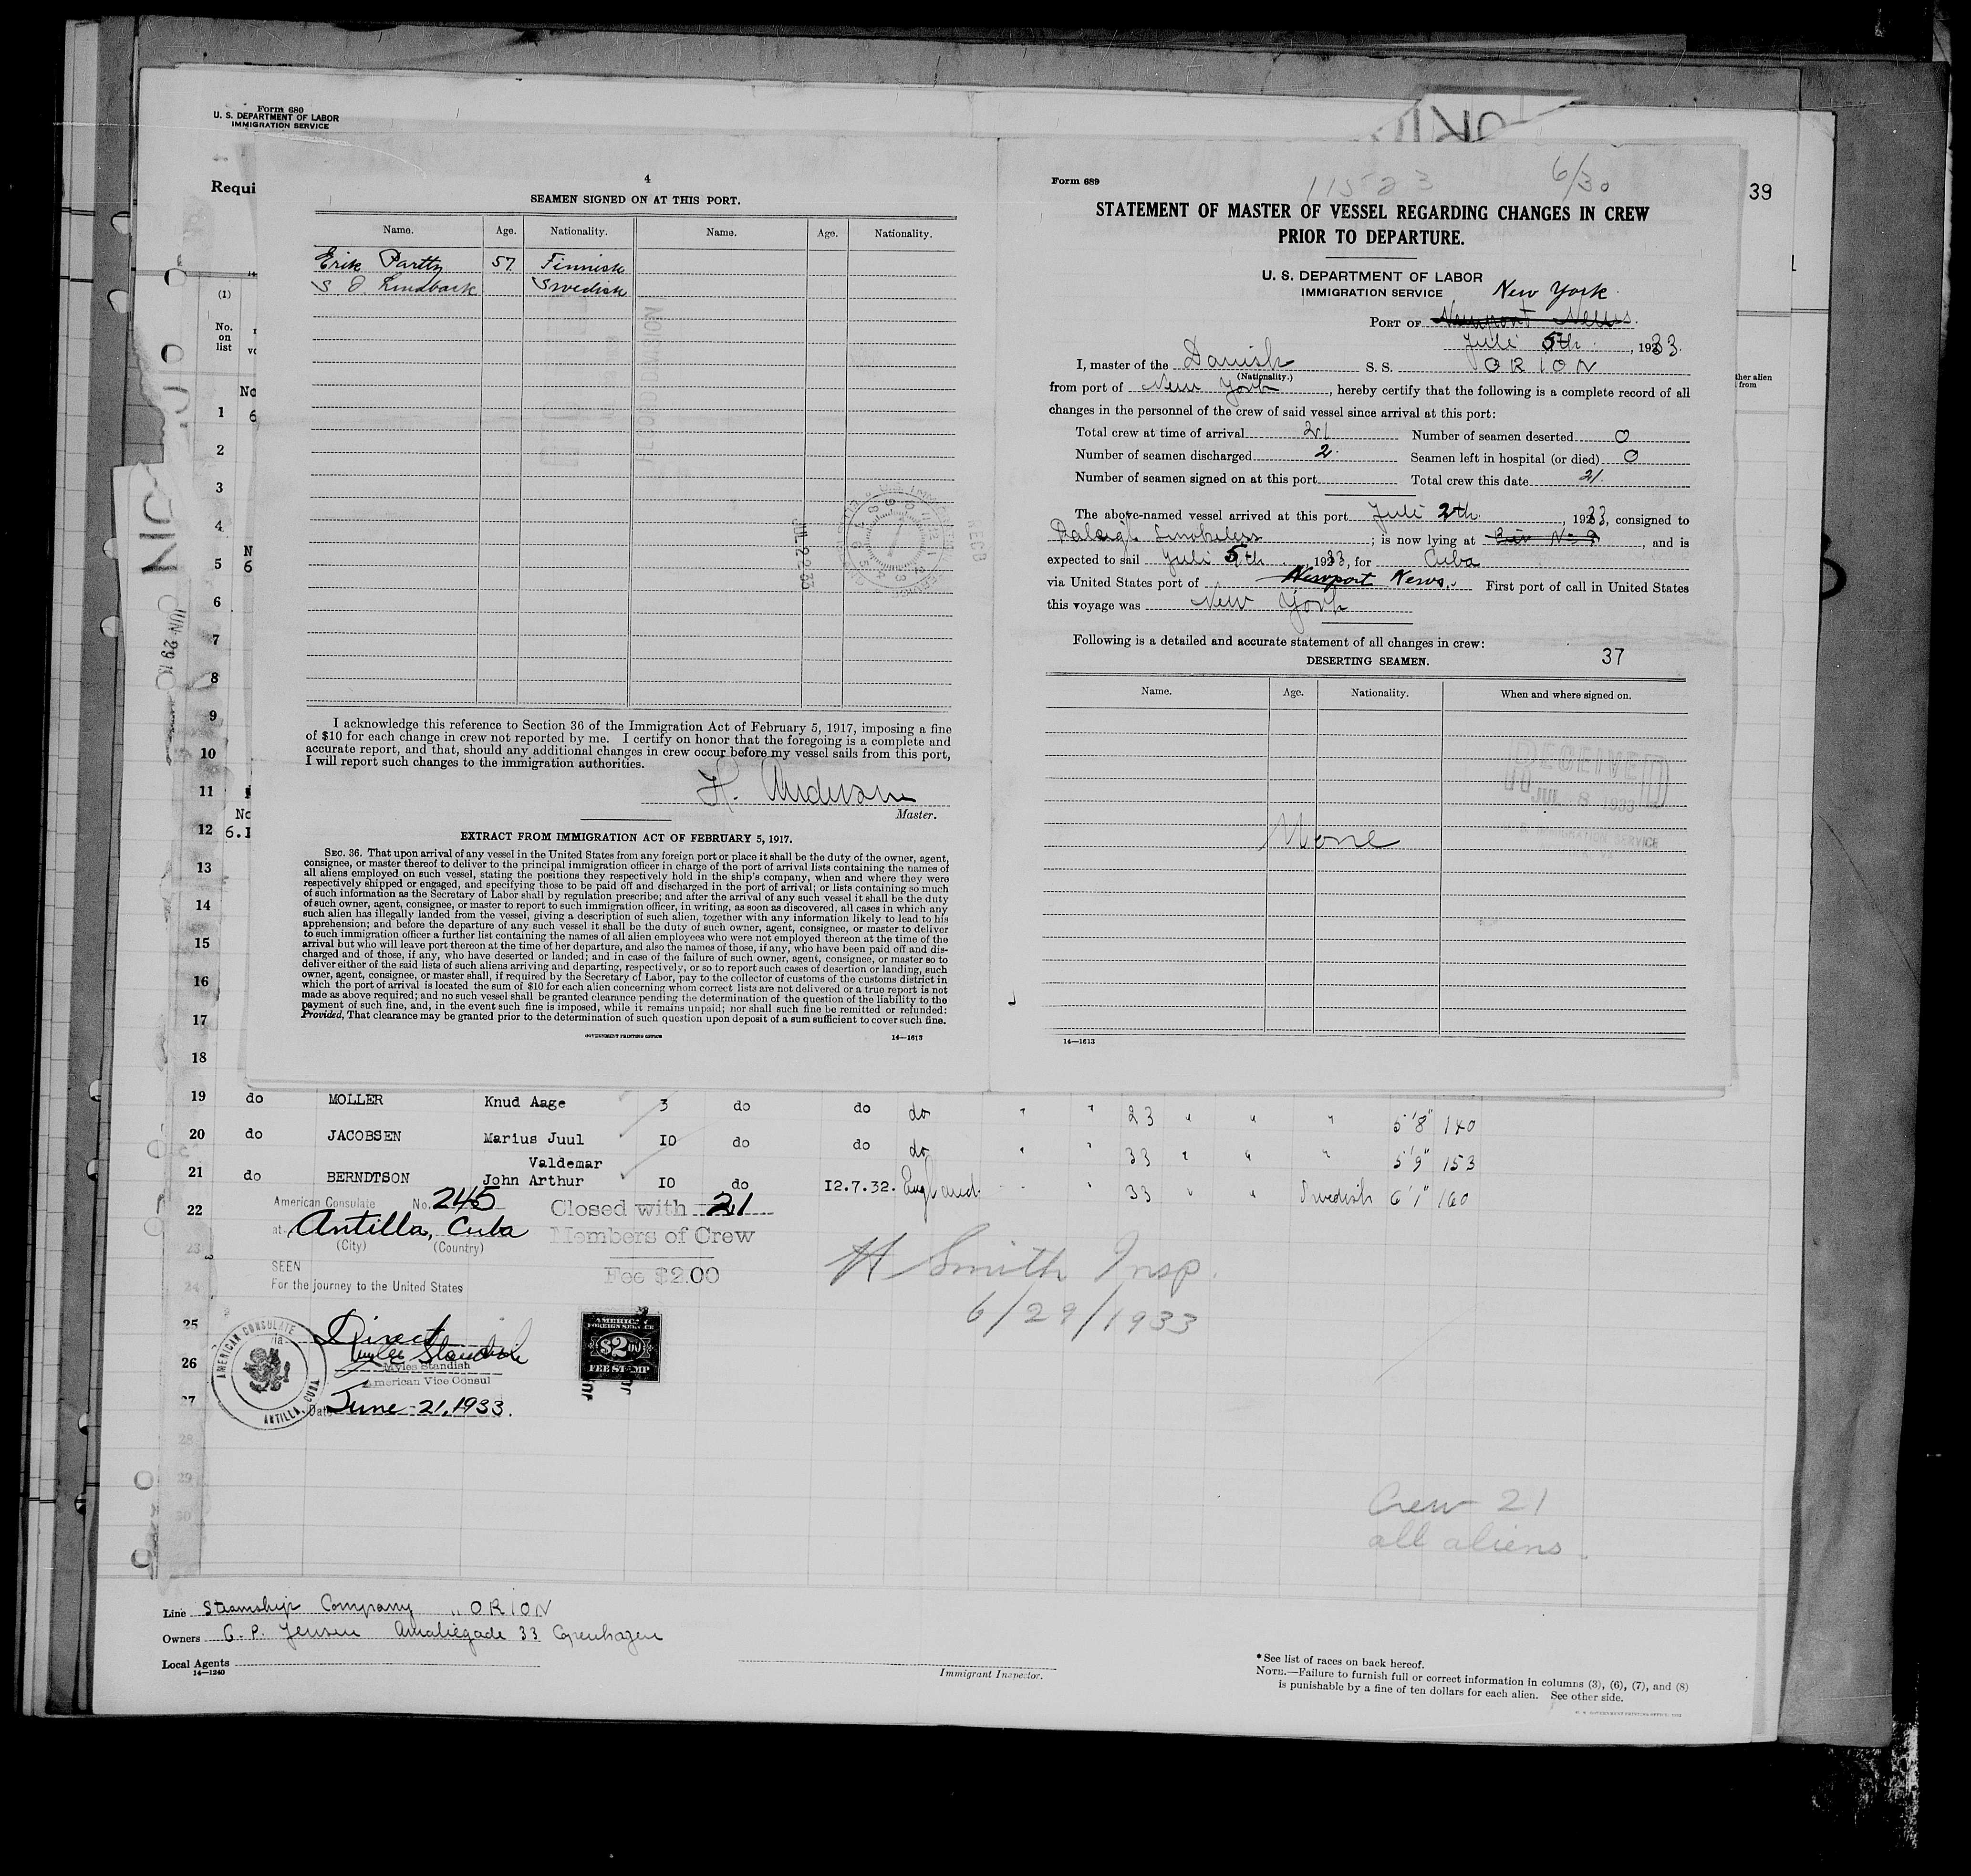 Form 680
U. S. DEPARTMENT OF LABOR
IMMIGRATION SERVICE
Requi
39
(1)
No.
on
list
4
SEAMEN SIGNED ON AT THIS PORT.
Name. Age. Nationality. Name. Age. Nationality.
Erik Partty 57 Finnish
S Lindback Swedish
JUL 22 33
I acknowledge this reference to Section 36 of the Immigration Act of February 5, 1917, imposing a fine
of $10 for each change in crew not reported by me. I certify on honor that the foregoing is a complete and
accurate report, and that, should any additional changes in crew occur before my vessel sails from this port,
I will report such changes to the immigration authorities.
H. Andersen
Master.
EXTRACT FROM IMMIGRATION ACT OF FEBRUARY 5, 1917.
SEC. 36. That upon arrival of any vessel in the United States from any foreign port or place it shall be the duty of the owner, agent,
consignee, or master thereof to deliver to the principal immigration officer in charge of the port of arrival lists containing the names of
all aliens employed on such vessel, stating the positions they respectively hold in the ship's company, when and where they were
respectively shipped or engaged, and specifying those to be paid off and discharged in the port of arrival; or lists containing so much
of such information as the Secretary of Labor shall by regulation prescribe; and after the arrival of any such vessel it shall be the duty
of such owner, agent, consignee, or master to report to such immigration officer, in writing, as soon as discovered, all cases in which any
such alien has illegally landed from the vessel, giving a description of such alien, together with any information likely to lead to his
apprehension; and before the departure of any such vessel it shall be the duty of such owner, agent, consignee, or master to deliver
to such immigration officer a further list containing the names of all alien employees who were not employed thereon at the time of the
arrival but who will leave port thereon at the time of her departure, and also the names of those, if any, who have been paid off and dis-
charged and of those, if any, who have deserted or landed; and in case of the failure of such owner, agent, consignee, or master so to
deliver either of the said lists of such aliens arriving and departing, respectively, or so to report such cases of desertion or landing, such
owner, agent, consignee, or master shall, if required by the Secretary of Labor, pay to the collector of customs of the customs district in
which the port of arrival is located the sum of $10 for each alien concerning whom correct lists are not delivered or a true report is not
made as above required; and no such vessel shall be granted clearance pending the determination of the question of the liability to the
payment of such fine, and, in the event such fine is imposed, while it remains unpaid; nor shall such fine be remitted or refunded:
Provided, That clearance may be granted prior to the determination of such question upon deposit of a sum sufficient to cover such fine.
GOVERNMENT PRINTING OFFICE 14—1613
Form 689
11523 6/30
STATEMENT OF MASTER OF VESSEL REGARDING CHANGES IN CREW
PRIOR TO DEPARTURE.
U. S. DEPARTMENT OF LABOR
IMMIGRATION SERVICE
New York
PORT OF Newport News.
Juli 5th, 1933.
I, master of the Danish S. S. ORION
(Nationality.)
from port of New York, hereby certify that the following is a complete record of all
changes in the personnel of the crew of said vessel since arrival at this port:
Total crew at time of arrival 21 Number of seamen deserted 0
Number of seamen discharged 2 Seamen left in hospital (or died) 0
Number of seamen signed on at this port Total crew this date 21.
The above-named vessel arrived at this port Juli 2th, 1933, consigned to
Raleigh Smokeless; is now lying at Pier No 9, and is
expected to sail Juli 5th, 1933, for Cuba
via United States port of Newport News. First port of call in United States
this voyage was New York
Following is a detailed and accurate statement of all changes in crew:
DESERTING SEAMEN. 37
Name. Age. Nationality. When and where signed on.
RECEIVED
JUL 8 1933
IMMIGRATION SERVICE
None
14—1613
1
2
3
4
5
6
7
8
9
10
11
12
13
14
15
16
17
18
19 do MOLLER Knud Aage 3 do do do " " 23 " " " 5'8" 140
20 do JACOBSEN Marius Juul 10 do do do " " 33 " " " 5'9" 153
Valdemar
21 do BERNDTSON John Arthur 10 do 12.7.32. England " " 33 " " Swedish 6'1" 160
22
American Consulate No. 245
at Antilla, Cuba
(City) (Country)
Closed with 21
Members of Crew
Fee $2.00
23
SEEN
24
For the journey to the United States
H Smith Insp.
6/29/1933
25
Direct
Myles Standish
26
Myles Standish
American Vice Consul
27
Date June 21, 1933.
AMERICAN CONSULATE
ANTILLA, CUBA
AMERICAN
FOREIGN SERVICE
$2.00
FEE STAMP
28
29
30
Crew 21
all aliens.
Line Steamship Company "ORION
Owners C. P. Jensen Amaliegade 33 Copenhagen
Local Agents
14—1240
Immigrant Inspector.
*See list of races on back hereof.
NOTE.—Failure to furnish full or correct information in columns (3), (6), (7), and (8)
is punishable by a fine of ten dollars for each alien. See other side.